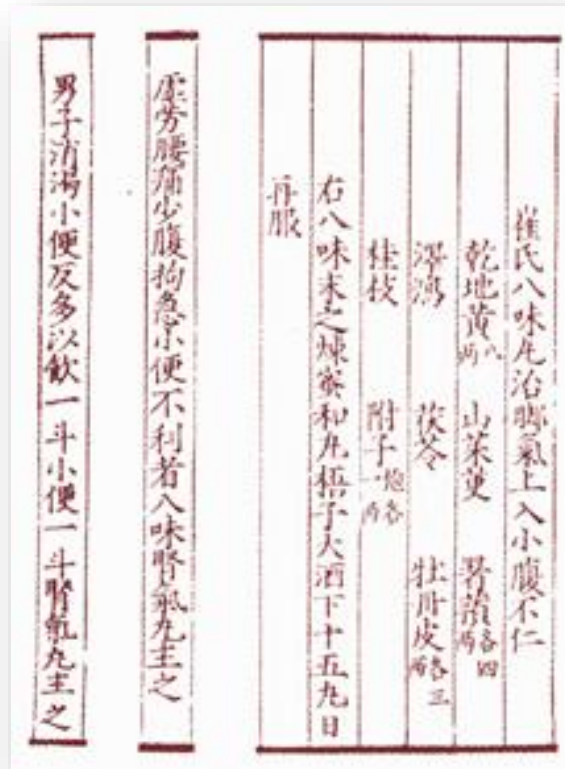 崔氏八味丸治脚氣上入小腹不仁
乾地黄八兩 山茱萸 署蕷各四兩
澤瀉 茯苓 牡丹皮各三兩
桂枝 附子炮各一兩
右八味末之煉蜜和丸梧子大酒下十五丸日
再服
虛劳腰痛少腹拘急小便不利者八味腎氣丸主之
男子消渴小便反多以飲一斗小便一斗腎氣丸主之